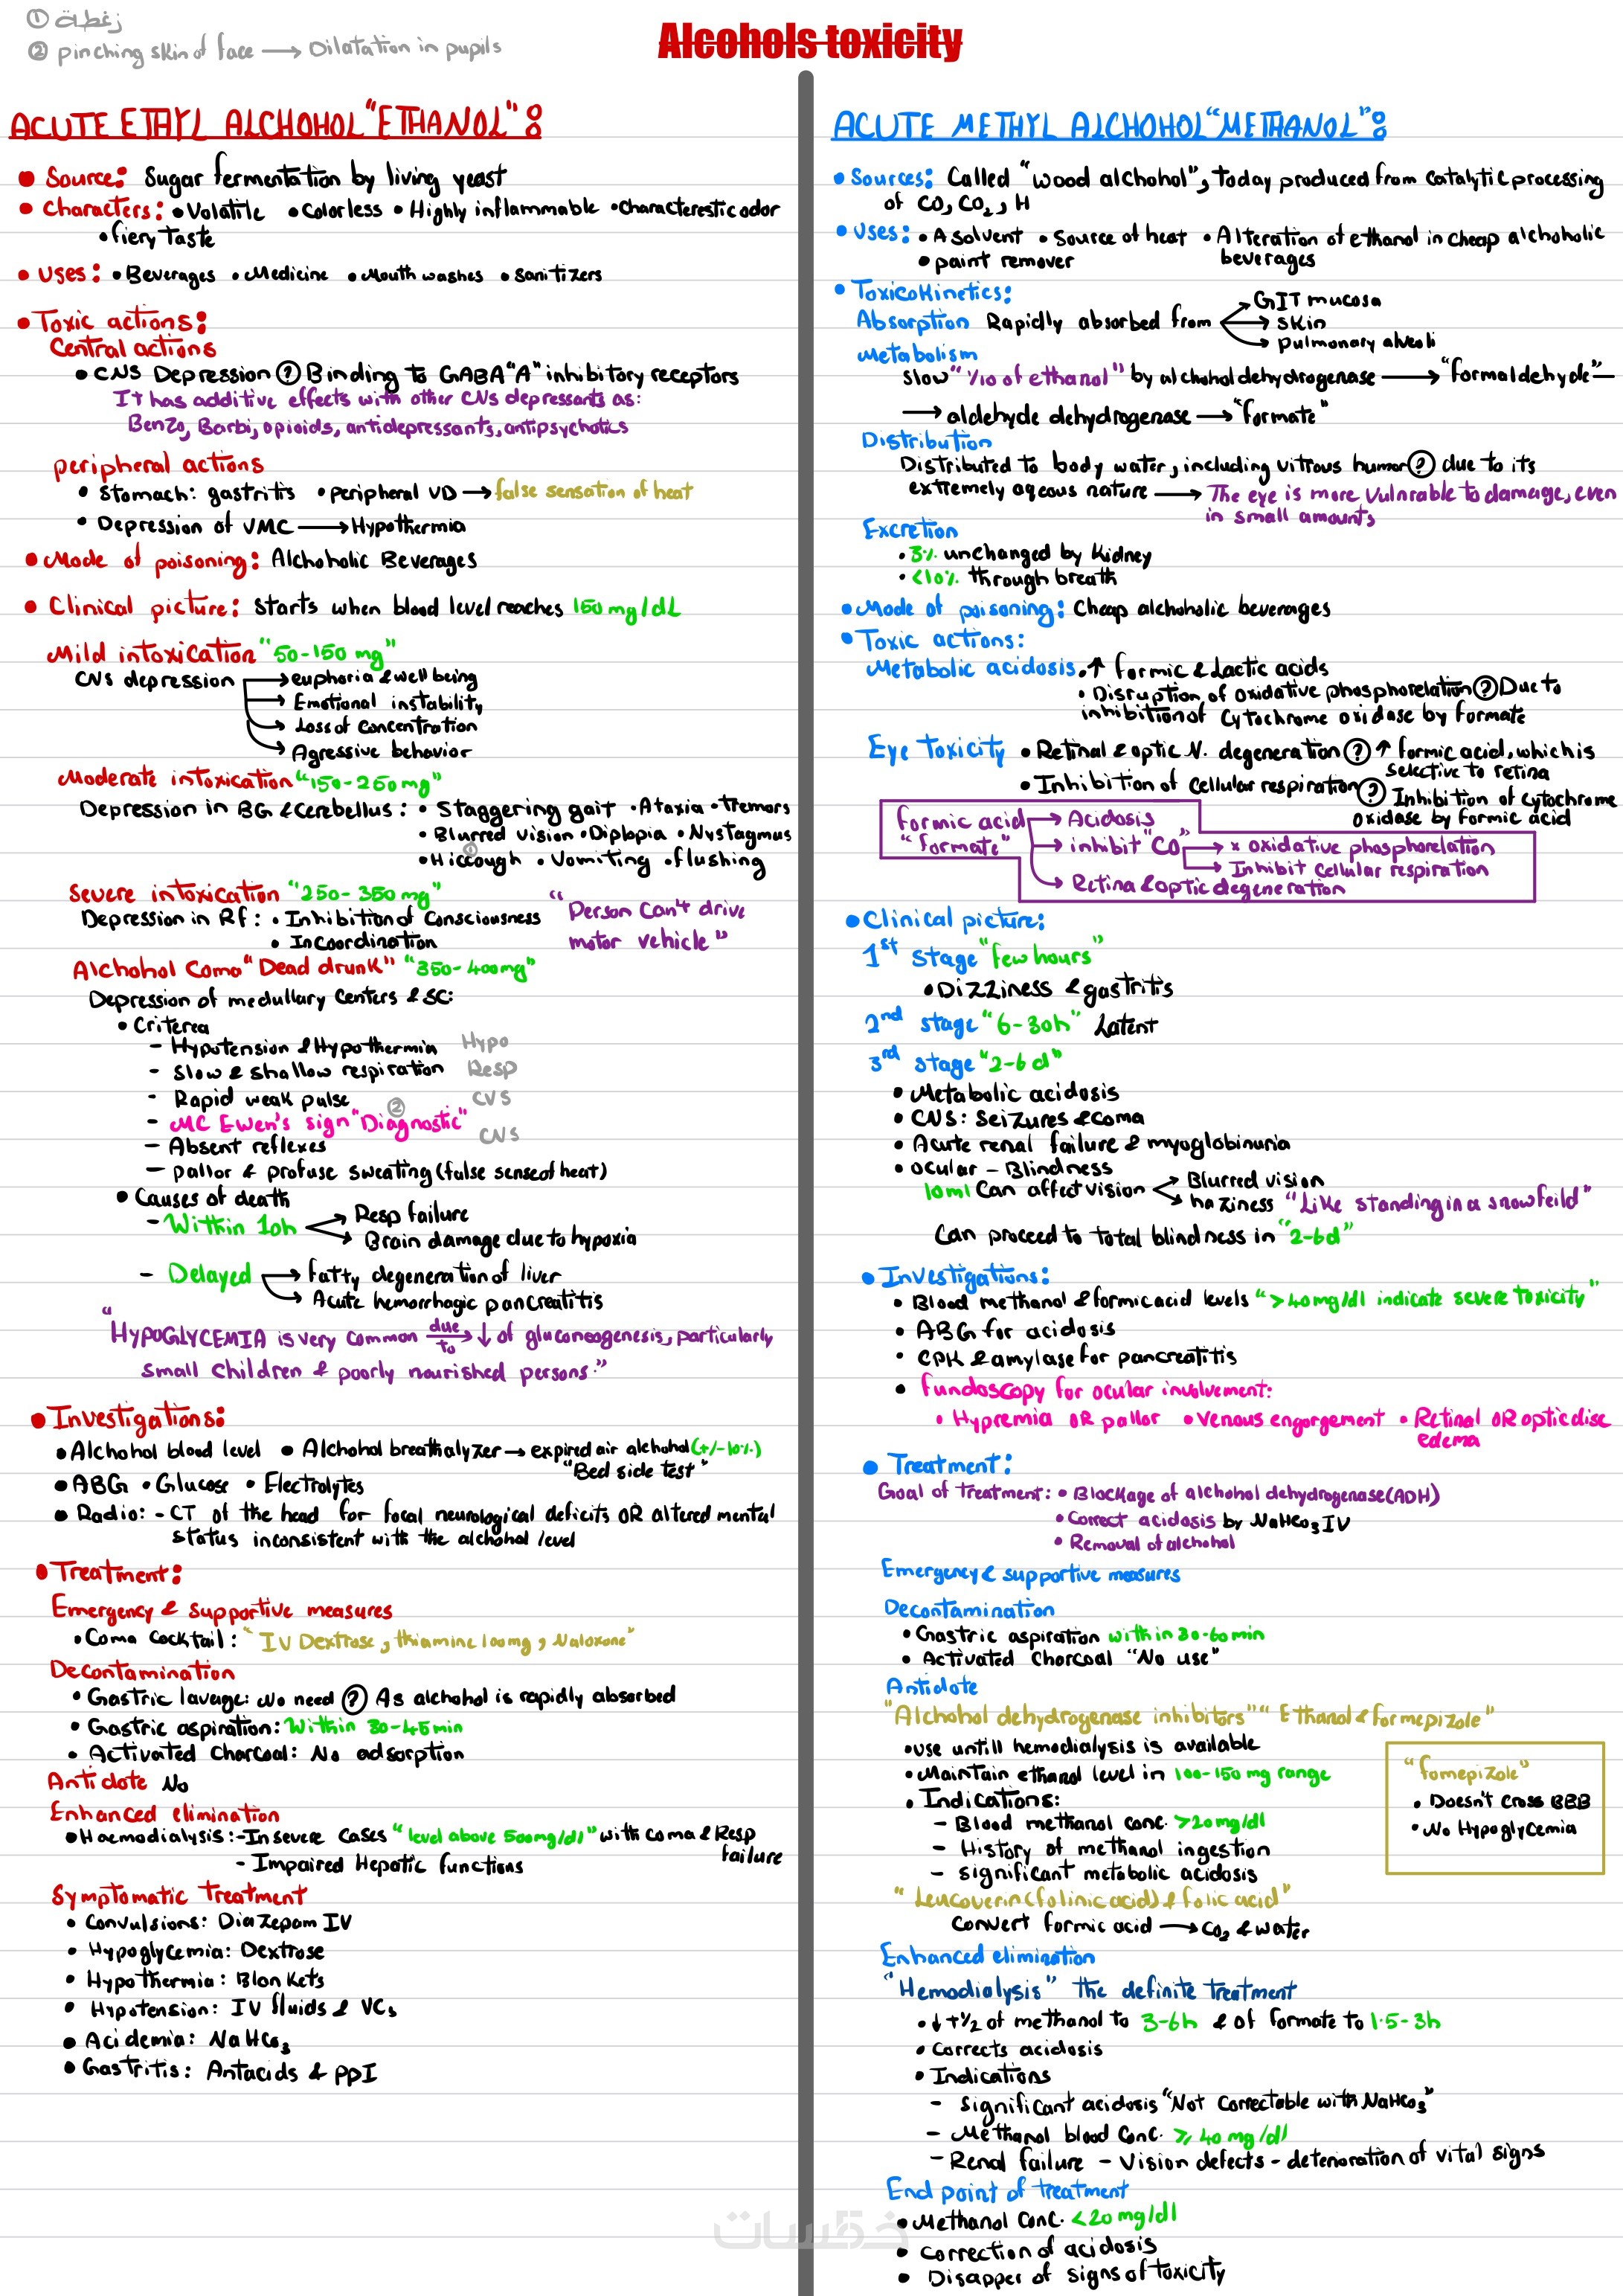 ① زغطة
② pinching skin of face → Dilatation in pupils
Alcohols toxicity
ACUTE ETHYL ALCHOHOL "ETHANOL":
• Source: Sugar fermentation by living yeast
• Characters: • Volatile • Colorless • Highly inflammable • Characterestic odor
• fiery Taste
• Uses: • Beverages • Medicine • Mouth washes • Sanitizers
• Toxic actions:
Central actions
• CNS Depression ? Binding to GABA "A" inhibitory receptors
It has additive effects with other CNS depressants as:
Benzo, Barbi, opioids, antidepressants, antipsychotics
peripheral actions
• Stomach: gastritis • peripheral VD → false sensation of heat
• Depression of VMC → Hypothermia
• Mode of poisoning: Alchoholic Beverages
• Clinical picture: Starts when blood level reaches 150 mg/dL
Mild intoxication "50-150 mg"
CNS depression → euphoria & well being
→ Emotional instability
→ Loss of concentration
→ Agressive behavior
Moderate intoxication "150-250 mg"
Depression in BG & Cerebellus: • Staggering gait • Ataxia • tremors
• Blurred vision • Diplopia • Nystagmus
①
• Hiccough • Vomiting • flushing
Severe intoxication "250-350 mg"
Depression in Rf: • Inhibition of Consciousness
• Incoordination
"Person Can't drive
motor vehicle"
Alchohol Coma "Dead drunk" "350-400mg"
Depression of medullary Centers & SC:
• Criterea
- Hypotension & Hypothermia Hypo
- Slow & shallow respiration Resp
- Rapid weak pulse CVS
- MC Ewen's sign "Diagnostic" ②
- Absent reflexes CNS
- pallor & profuse sweating (false sense of heat)
• Causes of death
- Within 10h → Resp failure
→ Brain damage due to hypoxia
- Delayed → fatty degeneration of liver
→ Acute hemorrhagic pancreatitis
"HYPOGLYCEMIA is very common due to → ↓ of gluconeogenesis, particularly
small children & poorly nourished persons."
• Investigations:
• Alchohol blood level • Alchohol breathalyzer → expired air alchohol (+/-10%)
"Bed side test"
• ABG • Glucose • Electrolytes
• Radio: - CT of the head for focal neurological deficits OR altered mental
status inconsistent with the alchohol level
• Treatment:
Emergency & supportive measures
• Coma Cocktail: "IV Dextrose, thiamine 100mg, Naloxone"
Decontamination
• Gastric lavage: No need ? As alchohol is rapidly absorbed
• Gastric aspiration: Within 30-45 min
• Activated Charcoal: No adsorption
Antidote No
Enhanced elimination
• Haemodialysis: - In severe Cases "level above 500mg/dl" with coma & Resp
failure
- Impaired Hepatic functions
Symptomatic Treatment
• Convulsions: Diazepam IV
• Hypoglycemia: Dextrose
• Hypothermia: Blankets
• Hypotension: IV fluids & VCs
• Acidemia: NaHCO3
• Gastritis: Antacids & PPI
ACUTE METHYL ALCHOHOL "METHANOL":
• Sources: Called "wood alchohol", Today produced from Catalytic processing
of CO, CO2, H
• Uses: • A solvent • Source of heat • Alteration of ethanol in cheap alchoholic
• paint remover beverages
• Toxicokinetics:
Absorption Rapidly absorbed from → GIT mucosa
→ skin
→ pulmonary alveoli
Metabolism
slow "1/10 of ethanol" by alchohol dehydrogenase → "formaldehyde" —
→ aldehyde dehydrogenase → "formate"
Distribution
Distributed to body water, including vitrous humor ? due to its
extremely aqeous nature → The eye is more Vulnrable to damage, even
in small amounts
Excretion
• 3% unchanged by kidney
• <10% through breath
• Mode of poisoning: Cheap alchoholic beverages
• Toxic actions:
Metabolic acidosis • ↑ formic & Lactic acids
• Disruption of oxidative phosphorelation ? Due to
inhibition of Cytochrome oxidase by formate
Eye Toxicity • Retinal & optic N. degeneration ? ↑ formic acid, which is
selective to retina
• Inhibition of cellular respiration ? Inhibition of cytochrome
oxidase by formic acid
formic acid → Acidosis
"formate" → inhibit "CO" → x oxidative phosphorelation
→ Inhibit cellular respiration
→ Retina & optic degeneration
• Clinical picture:
1st stage "few hours"
• Dizziness & gastritis
2nd stage "6-30h" Latent
3rd stage "2-6d"
• Metabolic acidosis
• CNS: Seizures & coma
• Acute renal failure & myoglobinuria
• ocular - Blindness
10ml Can affect vision → Blurred vision
→ haziness "Like standing in a snow feild"
Can proceed to total blindness in "2-6d"
• Investigations:
• Blood methanol & formic acid levels ">40mg/dl indicate severe toxicity"
• ABG for acidosis
• CPK & amylase for pancreatitis
• fundoscopy for ocular involvement:
• Hypremia OR pallor • venous engorgement • Retinal OR optic disc
edema
• Treatment:
Goal of treatment: • Blockage of alchohol dehydrogenase (ADH)
• Correct acidosis by NaHCO3 IV
• Removal of alchohol
Emergency & supportive measures
Decontamination
• Gastric aspiration within 30-60min
• Activated Charcoal "No use"
Antidote
"Alchohol dehydrogenase inhibitors" "Ethanol & formepizole"
• use untill hemodialysis is available
• Maintain ethanol level in 100-150 mg range
• Indications:
- Blood methanol conc. >20mg/dl
- History of methanol ingestion
- significant metabolic acidosis
"fomepizole"
• Doesn't cross BBB
• No Hypoglycemia
"Leucoverin (folinic acid) & folic acid"
Convert formic acid → CO2 & water
Enhanced elimination
"Hemodialysis" The definite treatment
• ↓ t½ of methanol to 3-6h & of formate to 1.5-3h
• Corrects acidosis
• Indications
- significant acidosis "Not Correctable with NaHCO3"
- Methanol blood Conc. ≥ 40 mg/dl
- Renal failure - Vision defects - deterioration of vital signs
End point of treatment
• Methanol Conc. <20 mg/dl
• Correction of acidosis
• Disapper of signs of toxicity
خمسات